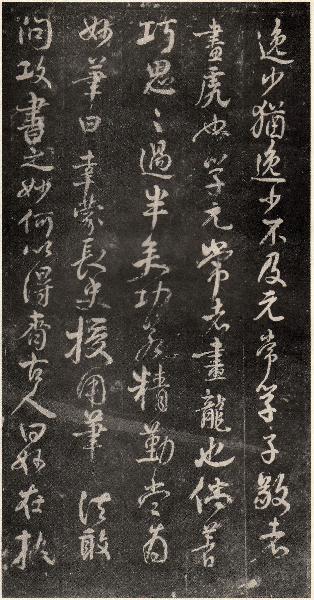 逸少猶逸少不及元常学子敬者
畫虎也学元常者畫龍也倘著
巧思〻過半矣功若精勤當為
妙筆曰幸蒙長史授用筆法敢
問攻書之妙何以得齊古人曰妙在執